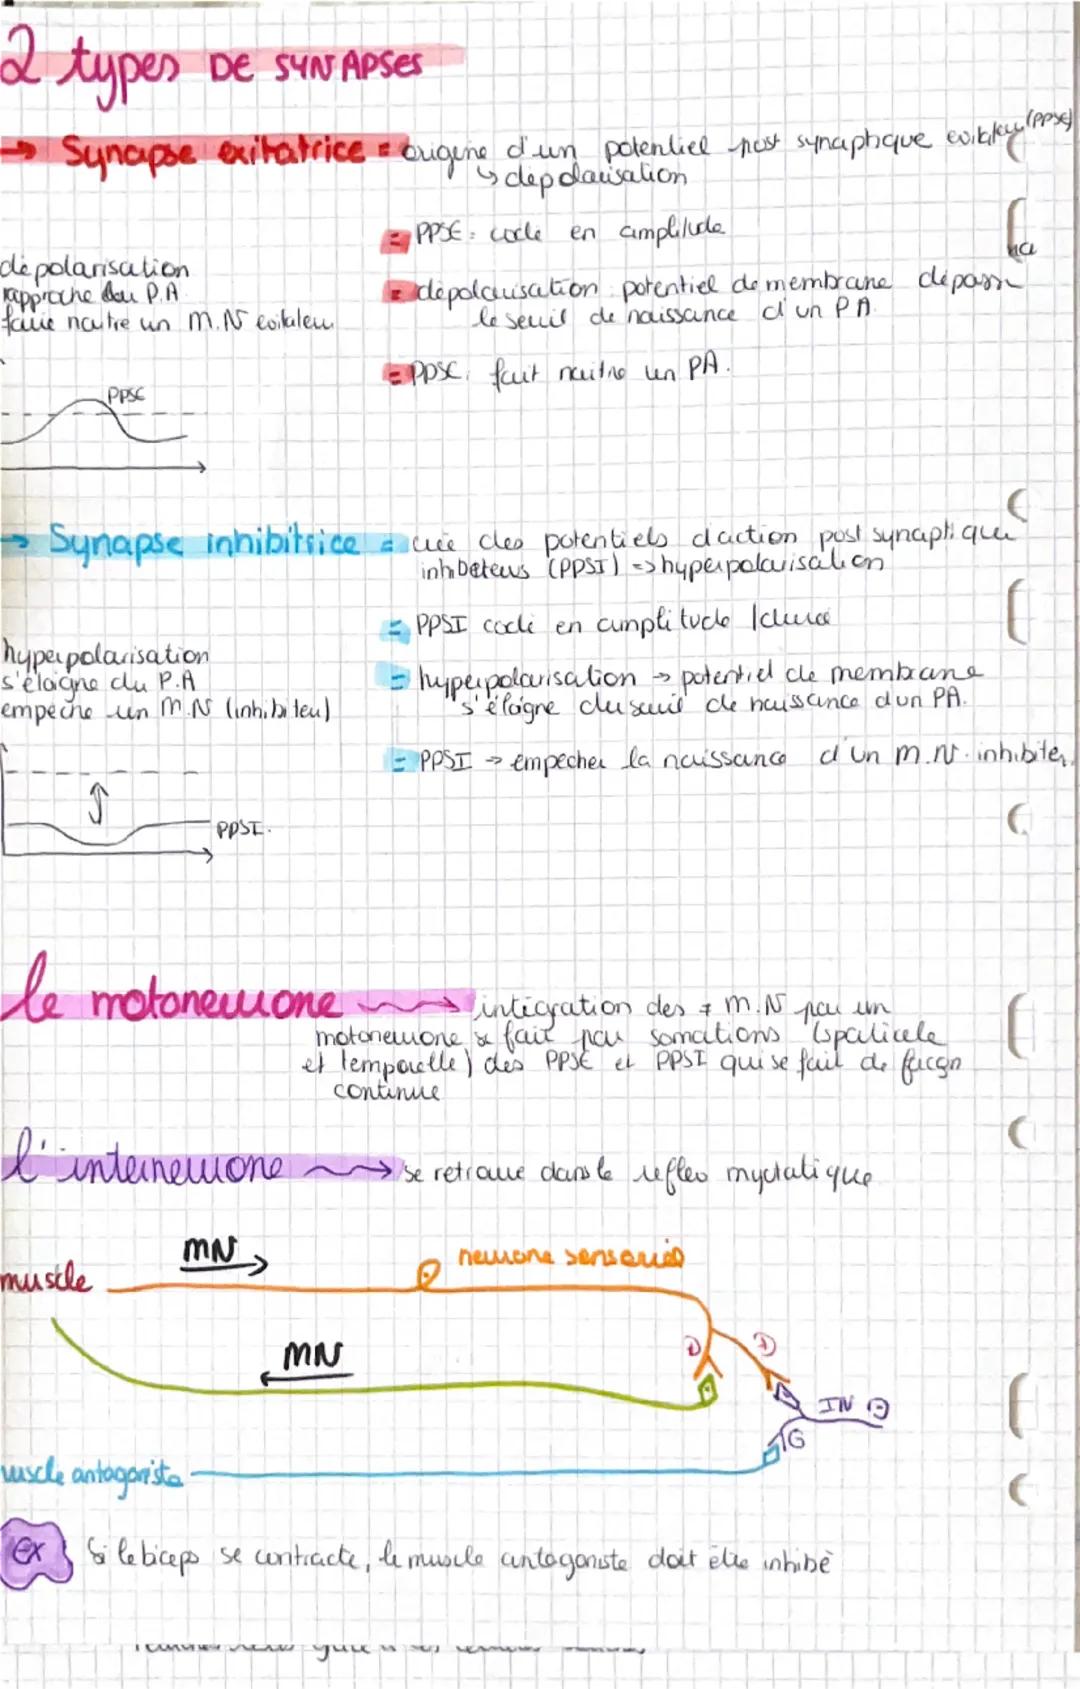 2 types DE SYNAPSES
→ Synapse exitatrice = origine d'un potentiel post synaptique (PPSE)
↳ dépolarisation
= PPSE : code en amplitude
na
dépolarisation
rapproche du P.A
faire naitre un M.N exitateur
= dépolarisation : potentiel de membrane dépasse
le seuil de naissance d'un PA.
= PPSE : fait naitre un PA.
PPSE
→ Synapse inhibitrice = crée des potentiels d'action post synaptique
inhibiteurs (PPSI) => hyperpolarisation
= PPSI codé en amplitude / durée
hyperpolarisation
s'éloigne du P.A
empeche un M.N (inhibiteur)
= hyperpolarisation → potentiel de membrane
s'éloigne du seuil de naissance d'un PA.
= PPSI → empecher la naissance d'un M.N. inhibiter.
PPSI.
le motoneurone → intégration des ≠ M.N par un
motoneurone se fait par somations (spatiale
et temporelle) des PPSE et PPSI qui se fait de façon
continue
l'interneurone → se retrouve dans le reflex myotatique
MN
neurone sensoriel
muscle
MN
IN ⊖
G
muscle antagoniste
ex Si le biceps se contracte, le muscle antagoniste doit être inhibé